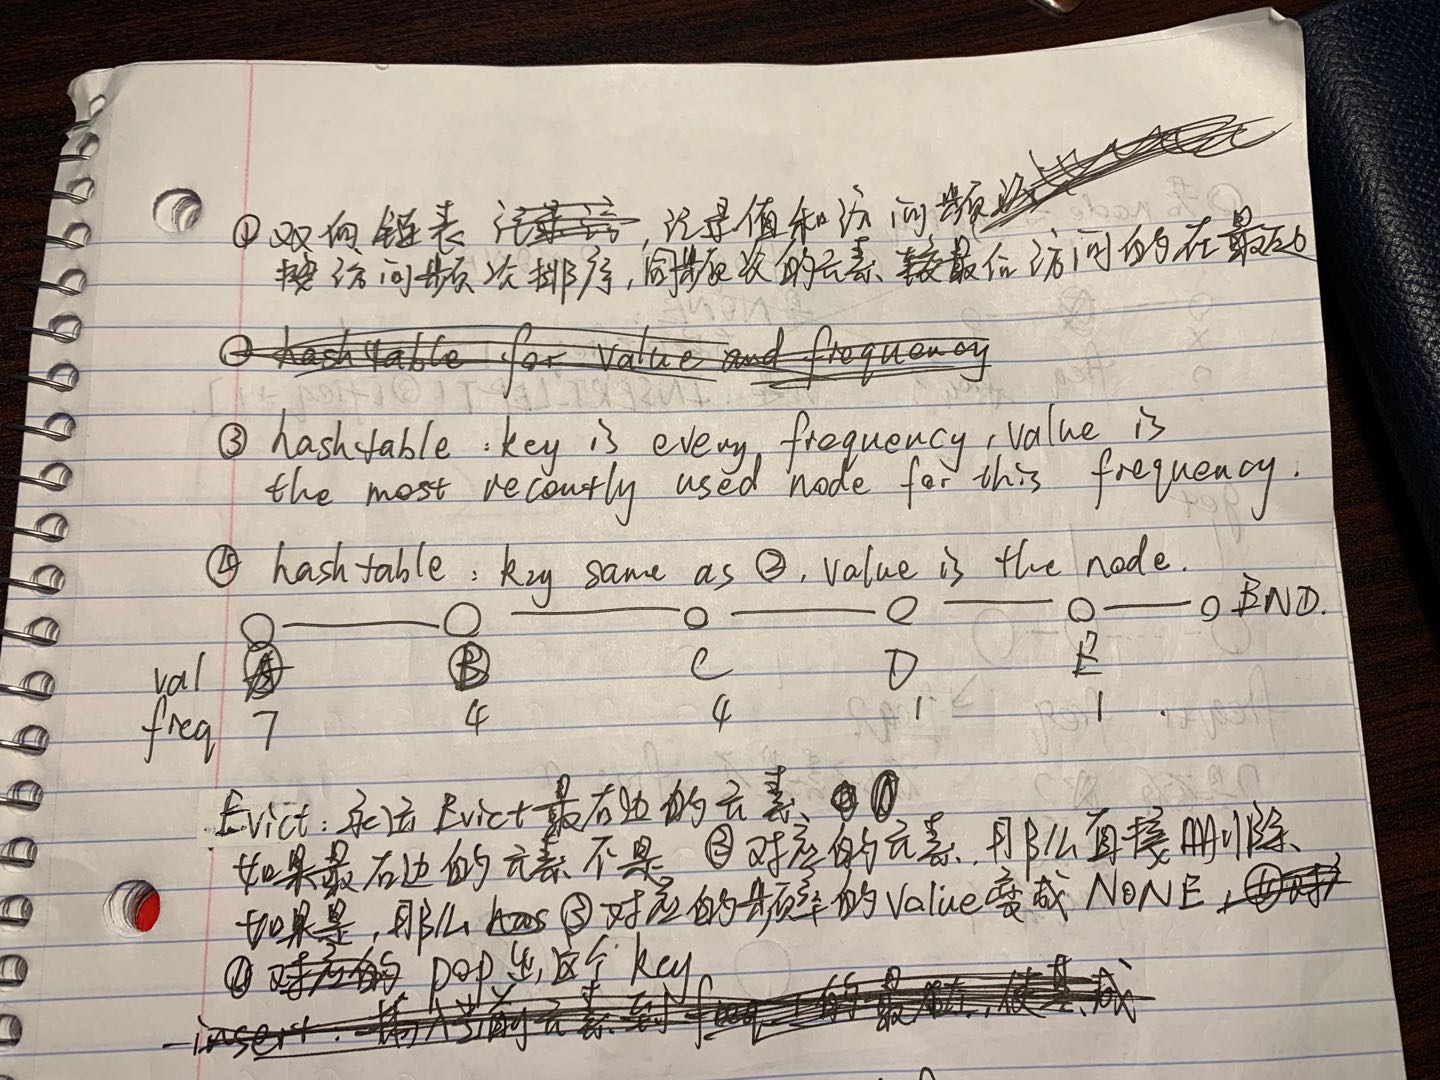 ① 双向链表, 记录值和访问频次
按访问频次排序, 同频次的元素, 较最近访问的在最左边
② hashtable for value and frequency
③ hashtable : key is every frequency, value is
the most recently used node for this frequency.
④ hashtable : key same as ②, value is the node.
END.
val A B C D E
freq 7 4 4 1 1
Evict: 永远 Evict 最右边的元素 ①
如果最右边的元素不是 ③ 对应的元素, 那么直接删除
如果是, 那么 ③ 对应的频率的 value 变成 NONE,
④ pop出这个 key
insert: 插入当前元素到 freq 1 的最左,